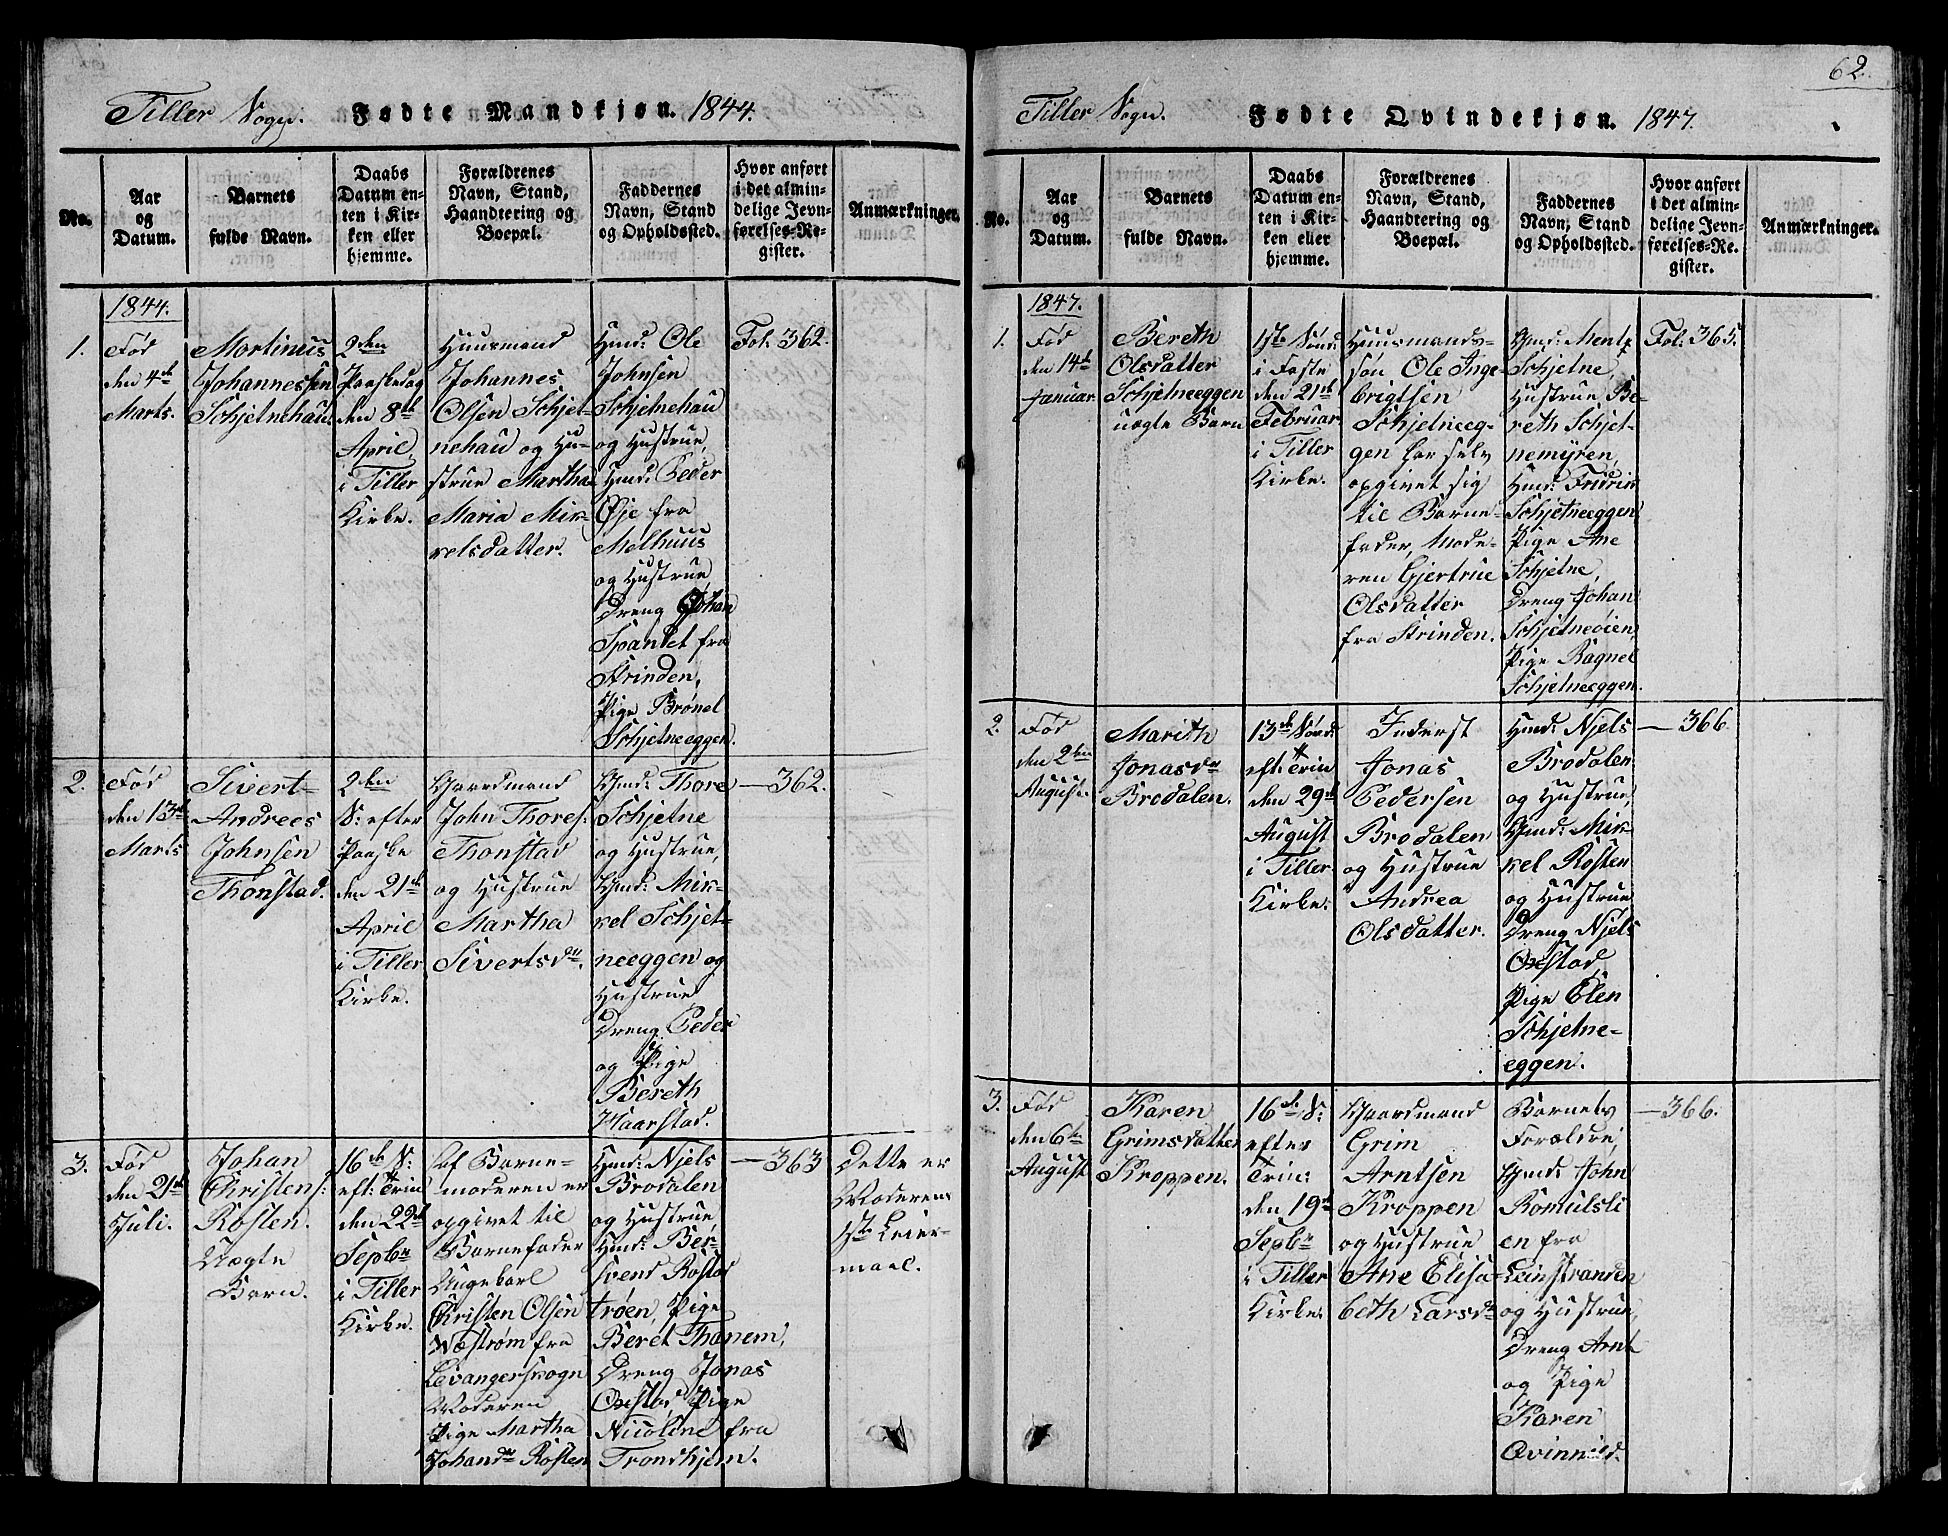 Tiller Sogn. Fødte Mandkjøn. 1844.
No.
Aar
og
Datum.
Barnets
fulde Navn.
Daabs
Datum en-
ten i Kir-
ken eller
hjemme.
Forældrenes
Navn, Stand,
Haandtering og
Boepæl.
Faddernes
Navn, Stand
og Opholdssted.
Hvor anført
i det almin-
delige Jevn-
førelses-Re-
gister.
Anmærkninger.
1844.
1.
Fød
den 4de
Marts.
Mortinus
Johannessen
Schjetnehau.
2den
Paaskedag
den 8de
April,
i Tiller
Kirke.
Huusmand
Johannes
Olsen Schjet-
nehau og Hu-
strue Martha
Maria Mik-
kelsdatter.
Hmd: Ole
Johnsen
Schjetnehau
og Hustrue,
Hmd: Peder
Øje fra
Melhuus
og Hustrue,
Dreng Johan
Spantet fra
Strinden,
Pige Brønel
Schjetneeggen.
Fol. 362.
2.
Fød
den 13de
Marts
Sivert
Andreas
Johnsen
Thonstad.
2den
S: efter
Paaske
den 21de
April
i Tiller
Kirke.
Gaardmand
John Thores:
Thonstad
og Hustrue
Martha
Sivertsdr.
Gmd: Thore
Schjetne
og Hustrue,
Gmd: Mik-
kel Schjet-
neeggen og
Hustrue,
Dreng Peder
og Pige
Bereth
Haarstad.
— 362.
3.
Fød
den 21de
Juli.
Johan
Christens:
Røsten.
Uægte
Barn.
16de S:
eft: Trin
den 22de
Septbr
i Tiller
Kirke.
af Barne-
moderen er
opgivet til
Barnefader
Ungekarl
Christen Olsen
Næstrøm fra
Levangersogn
Moderen
Pige Martha
Johansdr Røsten
Hmd: Njels
Brodalen
og Hustrue,
Hmd: Ber-
svend Rostad
trøen, Pige
Beret Thanem,
Dreng Jonas
Oxstad, Pige
Nicoline fra
Trondhjem.
— 363
Dette er
Moderens
1ste Leier-
maal.
62.
Tiller Sogn. Fødte Qvindekjøn. 1847.
No.
Aar
og
Datum.
Barnets
fulde Navn.
Daabs
Datum en-
ten i Kir-
ken eller
hjemme.
Forældrenes
Navn, Stand,
Haandtering og
Boepæl.
Faddernes
Navn, Stand
og Opholdssted.
Hvor anført
i det almin-
delige Jevn-
førelses-Re-
gister.
Anmærkninger.
1847.
1.
Fød
den 14de
Januar
Bereth
Olsdatter
Schjetneeggen
uægte Barn
1ste Sønd:
i Faste
den 21de
Februar
i Tiller
Kirke.
Huusmands-
søn Ole Inge-
brigtsen
Schjetneeg-
gen har selv
opgivet sig
til Barne-
fader, Mode-
ren Gjertrue
Olsdatter
fra Strinden.
Gmd: Mentz
Schjetne,
Hustrue Be-
reth Schjet-
nemyren,
Hmd: Fridrik
Schjetneeggen
Pige Ane
Schjetne,
Dreng Johan
Schjetneøien,
Pige Ragnel
Schjetneeggen.
Fol: 365.
2.
Fød
den 2den
August.
Marith
Jonasdr
Brodalen.
13de Sønd:
eft: Trin
den 29de
August
i Tiller
Kirke.
Inderst
Jonas
Pedersen
Brodalen
og Hustrue
Andrea
Olsdatter.
Hmd: Njels
Brodalen
og Hustrue,
Gmd: Mik-
kel Røsten
og Hustrue
Dreng Njels
Oxstad,
Pige Elen
Schjetne-
eggen.
— 366.
3.
Fød
den 6te
August
Karen
Grimsdatter
Kroppen.
16de S:
efter
Trin:
den 19de
Septbr
i Tiller
Kirke.
Gaardmand
Grim
Arntsen
Kroppen
og Hustrue
Ane Elisa-
beth Larsdr
Barnets
Forældre,
Gmd: John
Romulsli
en fra
Leinstranden
og Hustrue,
Dreng Arnt
og Pige
Karen
Qvinnild.
— 366.